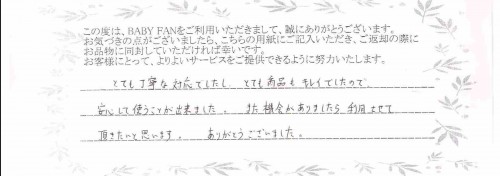 この度は、BABY FANをご利用いただきまして、誠にありがとうございます。
お気づきの点がございましたら、こちらの用紙にご記入いただき、ご返却の際に
お品物に同封していただければ幸いです。
お客様にとって、よりよいサービスをご提供できるように努力いたします。
とても丁寧な対応でしたし、とても商品もキレイでしたので、
安心して使うことが出来ました。また機会がありましたら利用させて
頂きたいと思います。ありがとうございました。